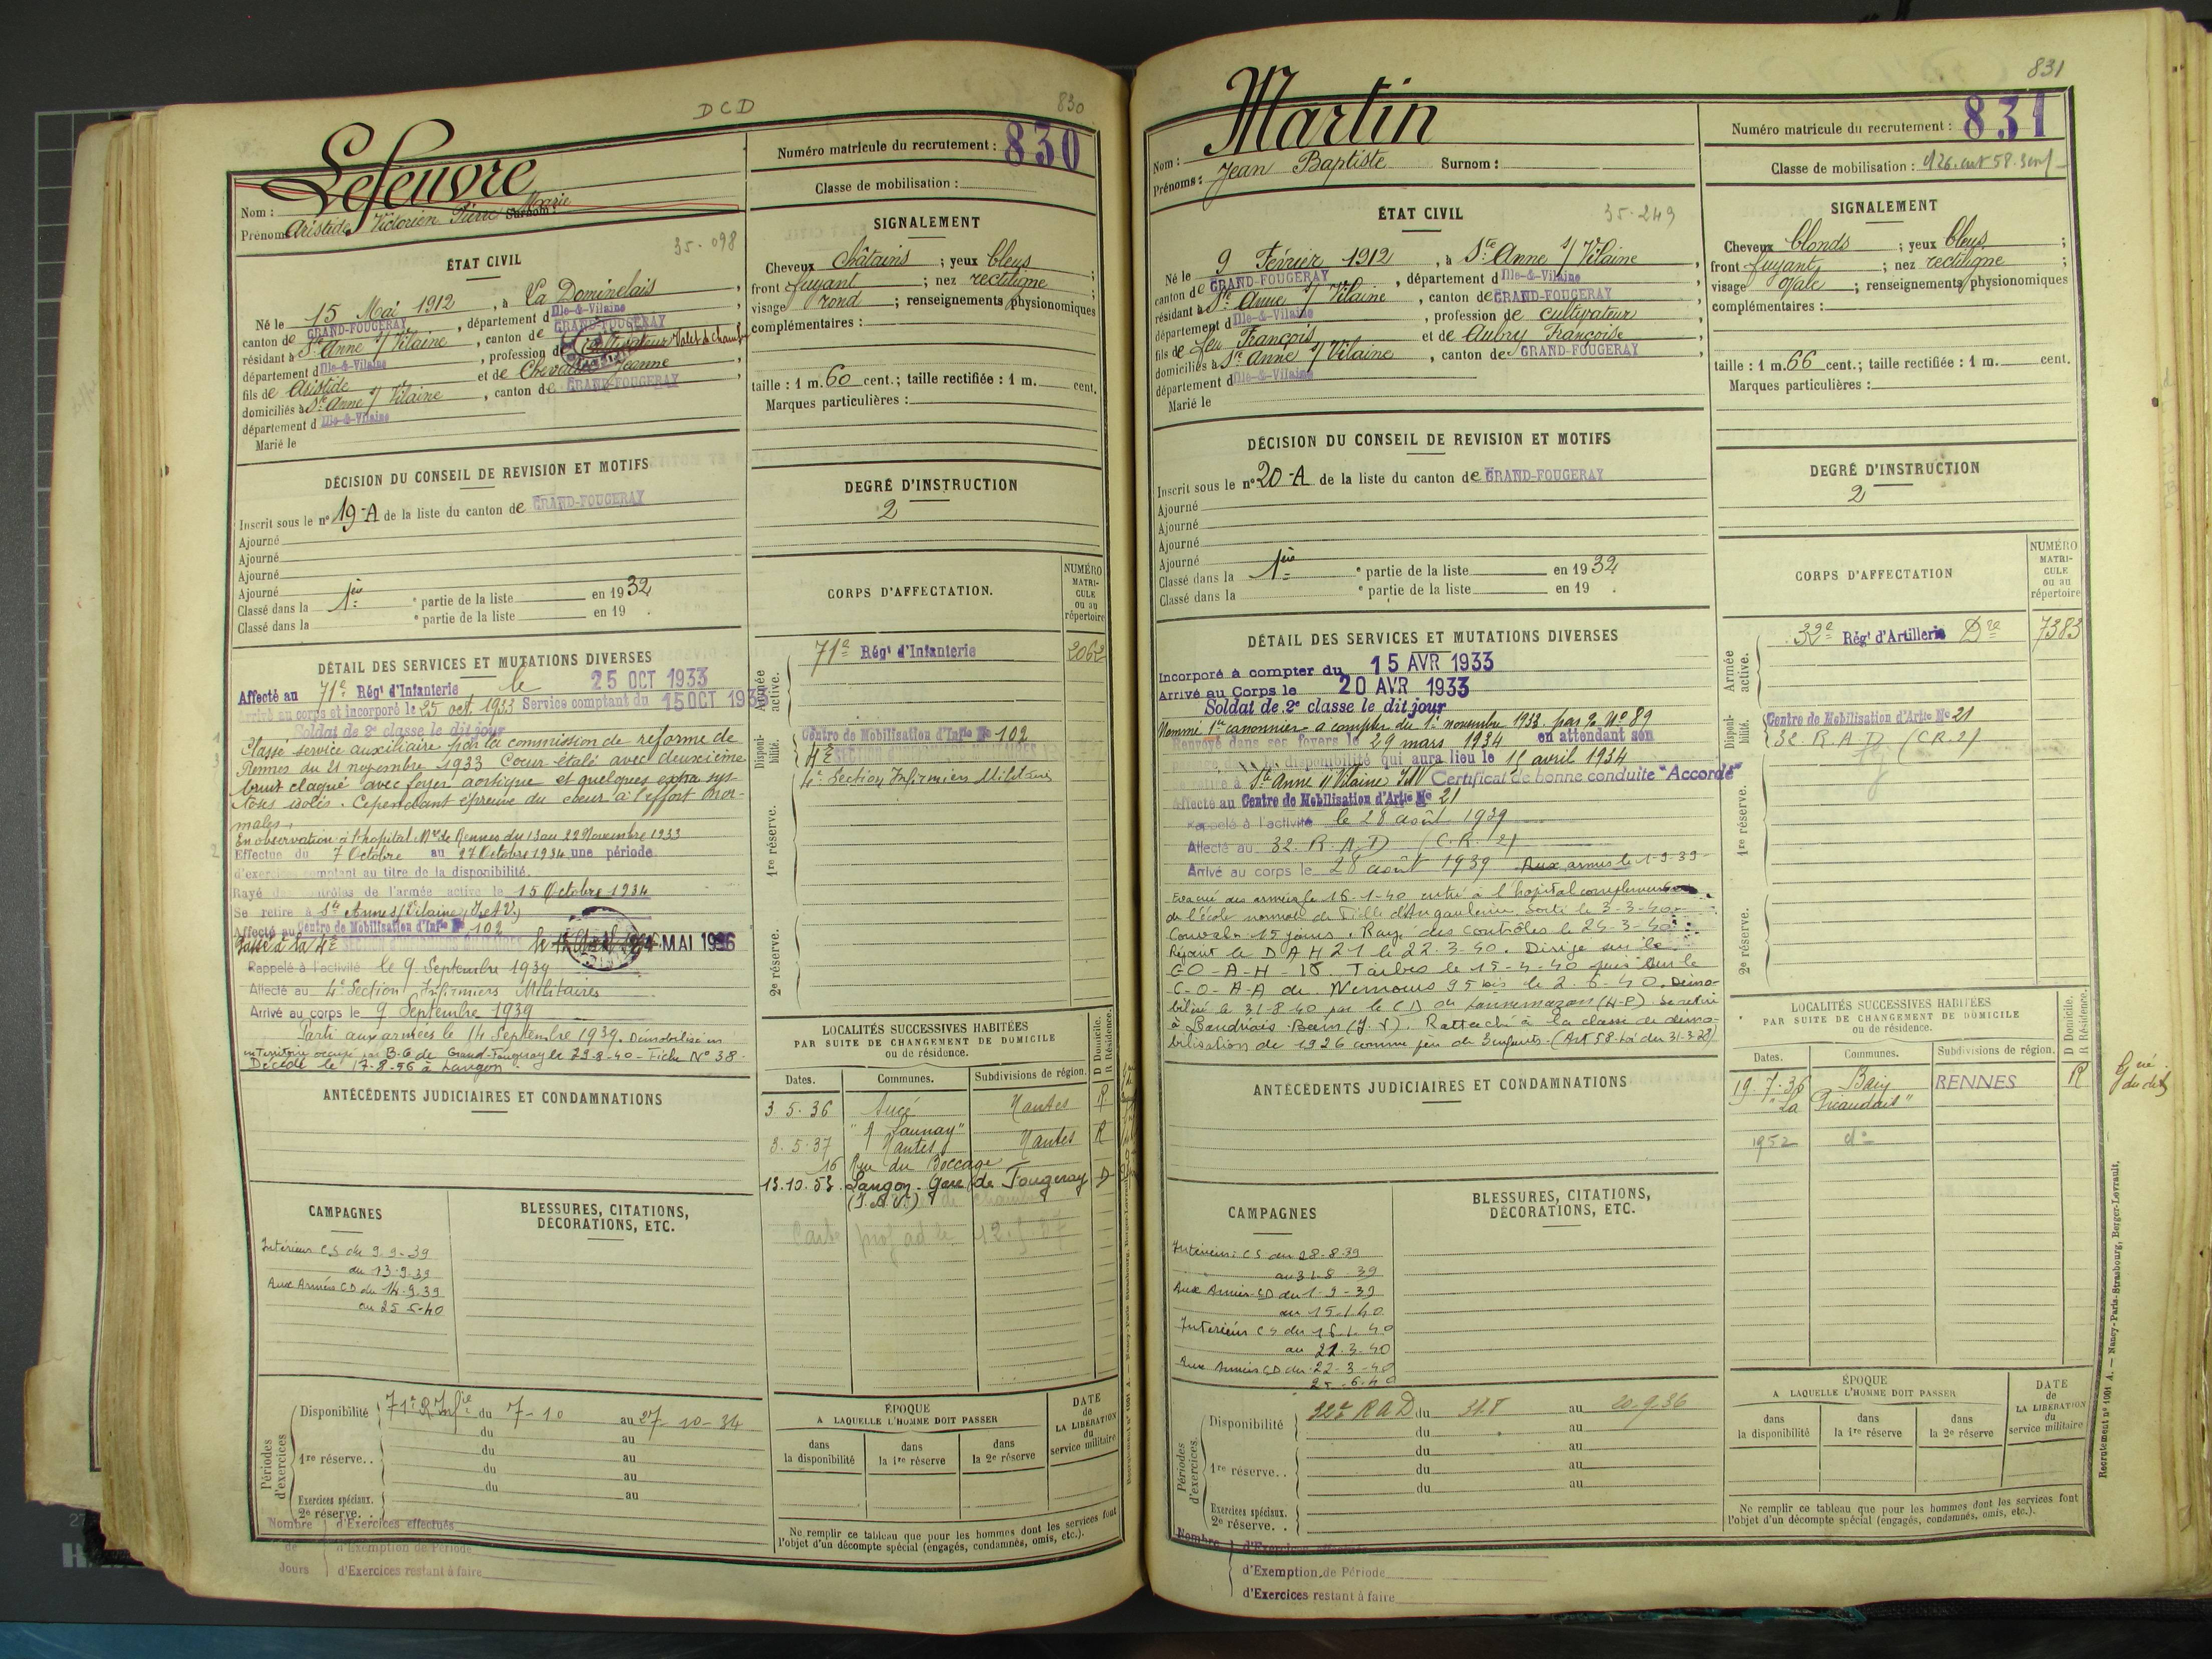 DCD
830
Lefeuvre
Nom :
Prénoms Aristide Victorien Pierre Marie
Numéro matricule du recrutement : 830
Classe de mobilisation :
35-098
ÉTAT CIVIL
Né le 15 Mai 1912, à La Dominelais
canton de GRAND-FOUGERAY, département d Ille-&-Vilaine
résidant à Ste Anne s/ Vilaine, canton de GRAND-FOUGERAY
département d Ille-&-Vilaine, profession de cultivateur Valet de chambre
fils de Aristide et de Chevalier Jeanne
domiciliés à Ste Anne s/ Vilaine, canton de GRAND-FOUGERAY
département d Ille-&-Vilaine
Marié le
SIGNALEMENT
Cheveux châtains ; yeux bleus ;
front fuyant ; nez rectiligne ;
visage rond ; renseignements physionomiques
complémentaires :
taille : 1 m. 60 cent. ; taille rectifiée : 1 m. cent.
Marques particulières :
DÉCISION DU CONSEIL DE REVISION ET MOTIFS
Inscrit sous le n° 19-A de la liste du canton de GRAND-FOUGERAY
Ajourné
Ajourné
Ajourné
Ajourné
Classé dans la 1ère e partie de la liste en 1932
Classé dans la e partie de la liste en 19 .
DEGRÉ D'INSTRUCTION
2
CORPS D'AFFECTATION.
NUMÉRO MATRICULE ou au répertoire
Armée active.
71e Régt d'Infanterie 2062
Disponibilité.
Centre de Mobilisation d'Infie No 102
4e
4e Section Infirmiers Militaires
1re réserve.
2e réserve.
DÉTAIL DES SERVICES ET MUTATIONS DIVERSES
Affecté au 71e Régt d'Infanterie le 25 OCT 1933
Arrivé au corps et incorporé le 25 oct. 1933 Service comptant du 15 OCT 1933
Soldat de 2e classe le dit jour
Classé service auxiliaire par la commission de réforme de
Rennes du 21 novembre 1933 Cœur étalé avec deuxième
bruit claqué avec foyer aortique et quelques extra sys-
toles isolés. Cependant épreuve du cœur à l'effort nor-
males.
En observation à l'hopital Mre de Rennes du 13 au 22 Novembre 1933
Effectue du 7 Octobre au 27 Octobre 1934 une période
d'exercices comptant au titre de la disponibilité.
Rayé des contrôles de l'armée active le 15 Octobre 1934
Se retire à Ste Anne s/ Vilaine (I. et V.)
Affecté au Centre de Mobilisation d'Infie No 102
Passé à la 4e SECTION D'INFIRMIERS MILITAIRES le MAI 1936
Rappelé à l'activité le 9 Septembre 1939
Affecté au 4e Section Infirmiers Militaires
Arrivé au corps le 9 Septembre 1939
Parti aux armées le 14 Septembre 1939. Démobilisé en
en Territoire occupé par B.G de Grand-Fougeray le 29-8-40 - Fiche N° 38.
Décédé le 17-8-56 à Langon
ANTÉCÉDENTS JUDICIAIRES ET CONDAMNATIONS
LOCALITÉS SUCCESSIVES HABITÉES
PAR SUITE DE CHANGEMENT DE DOMICILE
ou de résidence.
D Domicile.
R Résidence.
Dates. Communes. Subdivisions de région.
3.5.36 Sucé Nantes R
"A Launay"
3.5.37 Nantes Nantes R
16 Rue du Boccage
13.10.53 Langon. Gare de Fougeray D
(I. & V.)
CAMPAGNES
Intérieur CS du 9.9.39
au 13-9-39
Aux Armées CD du 14.9.39
au 25-6-40
BLESSURES, CITATIONS,
DÉCORATIONS, ETC.
Périodes d'exercices
Disponibilité 71e R Infie du 7-10 au 27-10-34
du au
1re réserve.. du au
du au
du au
Exercices spéciaux. au
2e réserve. .
Nombre d'Exercices effectués
de d'Exemption de Période
Jours d'Exercices restant à faire
ÉPOQUE
A LAQUELLE L'HOMME DOIT PASSER
dans la disponibilité
dans la 1re réserve
dans la 2e réserve
DATE de LA LIBÉRATION du service militaire
Ne remplir ce tableau que pour les hommes dont les services font
l'objet d'un décompte spécial (engagés, condamnés, omis, etc.).
831
Martin
Nom :
Prénoms : Jean Baptiste Surnom :
Numéro matricule du recrutement : 831
Classe de mobilisation :
35-249
ÉTAT CIVIL
Né le 9 Février 1912, à Ste Anne s/ Vilaine
canton de GRAND-FOUGERAY, département d Ille-&-Vilaine
résidant à Ste Anne s/ Vilaine, canton de GRAND-FOUGERAY
département d Ille-&-Vilaine, profession de cultivateur
fils de feu François et de Aubry Françoise
domiciliés à Ste Anne s/ Vilaine, canton de GRAND-FOUGERAY
département d Ille-&-Vilaine
Marié le
SIGNALEMENT
Cheveux blonds ; yeux bleus ;
front fuyant ; nez rectiligne ;
visage ovale ; renseignements physionomiques
complémentaires :
taille : 1 m. 66 cent. ; taille rectifiée : 1 m. cent.
Marques particulières :
DÉCISION DU CONSEIL DE REVISION ET MOTIFS
Inscrit sous le n° 20-A de la liste du canton de GRAND-FOUGERAY
Ajourné
Ajourné
Ajourné
Ajourné
Classé dans la 1ère e partie de la liste en 1932
Classé dans la e partie de la liste en 19 .
DEGRÉ D'INSTRUCTION
2
CORPS D'AFFECTATION
NUMÉRO MATRICULE ou au répertoire
Armée active.
32e Régt d'Artillerie Dre 7383
Disponibilité.
Centre de Mobilisation d'Artie No 21
32. R.A.D. (C.R.2)
1re réserve.
2e réserve.
DÉTAIL DES SERVICES ET MUTATIONS DIVERSES
Incorporé à compter du 15 AVR 1933
Arrivé au Corps le 20 AVR 1933
Soldat de 2e classe le dit jour
Nommé 1er canonnier à compter du 1er novembre 1933 par N° 89
Renvoyé dans ses foyers le 29 mars 1934 en attendant son
passage dans la disponibilité qui aura lieu le 15 avril 1934
Se retire à Ste Anne s/ Vilaine I&V Certificat de bonne conduite "Accordé"
Affecté au Centre de Mobilisation d'Artie No 21
Rappelé à l'activité le 28 août 1939
Affecté au 32. R.A.D (C.R. 2)
Arrivé au corps le 28 août 1939 Aux armées le 1-9-39
Evacué des armées le 16-1-40 entré à l'hopital complémentaire
de l'école normale de Fille d'Angoulême. Sorti le 3-3-40.
Convaln 15 jours. Rayé des contrôles le 24-3-40
Rejoint le D A H 21 le 22.3-40. Dirigé sur le
C-O-A-H- 18. Tarbes le 15-4-40 puis sur le
C-O-A-A de Nemours 95 bis le 2-6-40. Démo-
bilisé le 31-8-40 par le CD de Lannemezan (H-P). Se retire
à Baudriais Bain (I.V). Rattaché à la classe de démo-
bilisation de 1926 comme père de 3 enfants. (Art 58 - Loi du 31-3-28)
ANTÉCÉDENTS JUDICIAIRES ET CONDAMNATIONS
LOCALITÉS SUCCESSIVES HABITÉES
PAR SUITE DE CHANGEMENT DE DOMICILE
ou de résidence.
D Domicile.
R Résidence.
Dates. Communes. Subdivisions de région.
19.7.36 Bain RENNES R
"La Picaudais"
1952 do
CAMPAGNES
Intérieur : CS du 28-8-39
au 31-8-39
Aux Armées CD du 1-9-39
au 15.1.40
Intérieur CS du 16.1.40
au 21.3-40
Aux Armées CD du 22-3-40
25-6.40
BLESSURES, CITATIONS,
DÉCORATIONS, ETC.
Périodes d'exercices.
Disponibilité 32e RAD du 31.8 au 20.9.36
du au
du au
1re réserve. . du au
du au
Exercices spéciaux.
2e réserve. .
Nombre d'Exercices effectués
d'Exemption de Période
d'Exercices restant à faire
ÉPOQUE
A LAQUELLE L'HOMME DOIT PASSER
dans la disponibilité
dans la 1re réserve
dans la 2e réserve
DATE de LA LIBÉRATION du service militaire
Ne remplir ce tableau que pour les hommes dont les services font
l'objet d'un décompte spécial (engagés, condamnés, omis, etc.).
Recrutement n° 1001 A. — Nancy-Paris-Strasbourg, Berger-Levrault.